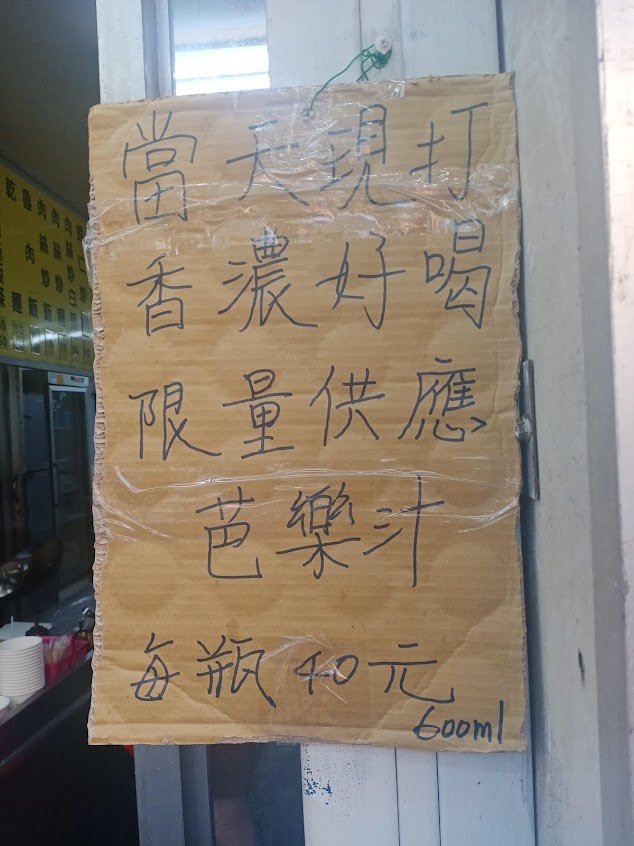 當天現打
香濃好喝
限量供應
芭樂汁
每瓶40元
600ml